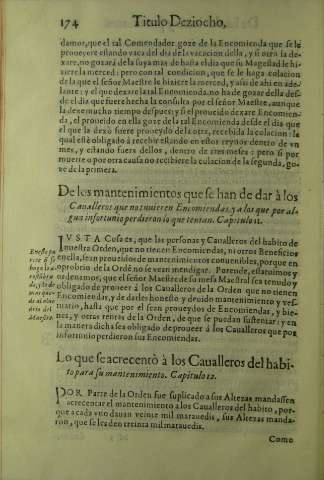 174 Titulo Deziocho,
damos, que el tal Comendador goze de la Encomienda que se le
proueyere estando vaca del dia de la vacacion della, y si otro la de-
xare, no gozará de la suya mas de hasta el dia que su Magestad le hi-
ziere la merced: pero con tal condicion, que se le haga colacion
de la que el señor Maestre le hiziere la merced, y assi de ahi en ade-
lante: y el que dexare la tal Encomienda no ha de gozar della des-
de el dia que fuere hecha la consulta por el señor Maestre, aunque
la dexe mucho tiempo despues; y si el proueido dexare Encomien-
da, el proueido en ella goze de la tal Encomienda desde el dia que
el que la dexô fuere proueydo de la otra, recebida la colacion: la
qual esté obligado à recebir estando en estos reynos dentro de vn
mes, y estando fuera dellos, dentro de tres meses: pero si por
muerte o por otra causa no recibiere la colacion de la segunda, go-
ze de la primera.
De los mantenimientos que se han de dar à los
Caualleros que no tuuieren Encomiendas, y a los que por al-
gun infortunio perdieron lo que tenian. Capitulo 11.
IVSTA Cosa es, que las personas y Caualleros del habito de
nuestra Orden, que no tienen Encomiendas, ni otros Beneficios
en ella, sean proueidos de mantenimientos conuenibles, porque en
oprobio de la Ordē no se vean mendigar. Porende, estatuimos y
ordenamos, que el señor Maestre de su mesa Maestral sea tenudo y
obligado de proueer à los Caualleros de la Orden que no tienen
Encomiendas, y de darles honesto y deuido mantenimiento y ves-
tuario, hasta que por el sean proueydos de Encomiendas, y bie-
nes, y otras rentas de la Orden, de que se puedan sustentar: y en
la manera dicha sea obligado de proueer à los Caualleros que por
infortunio perdieron sus Encomiendas.
Lo que se acrecentò à los Caualleros del habi-
to para su mantenimiento. Capitulo 12.
POR Parte de la Orden fue suplicado à sus Altezas mandassen
acrecentar el mantenimiento à los Caualleros del habito, por-
que a cada vno dauan veinte mil marauedis, sus Altezas manda-
ron, que se les den treinta mil marauedis.
Como